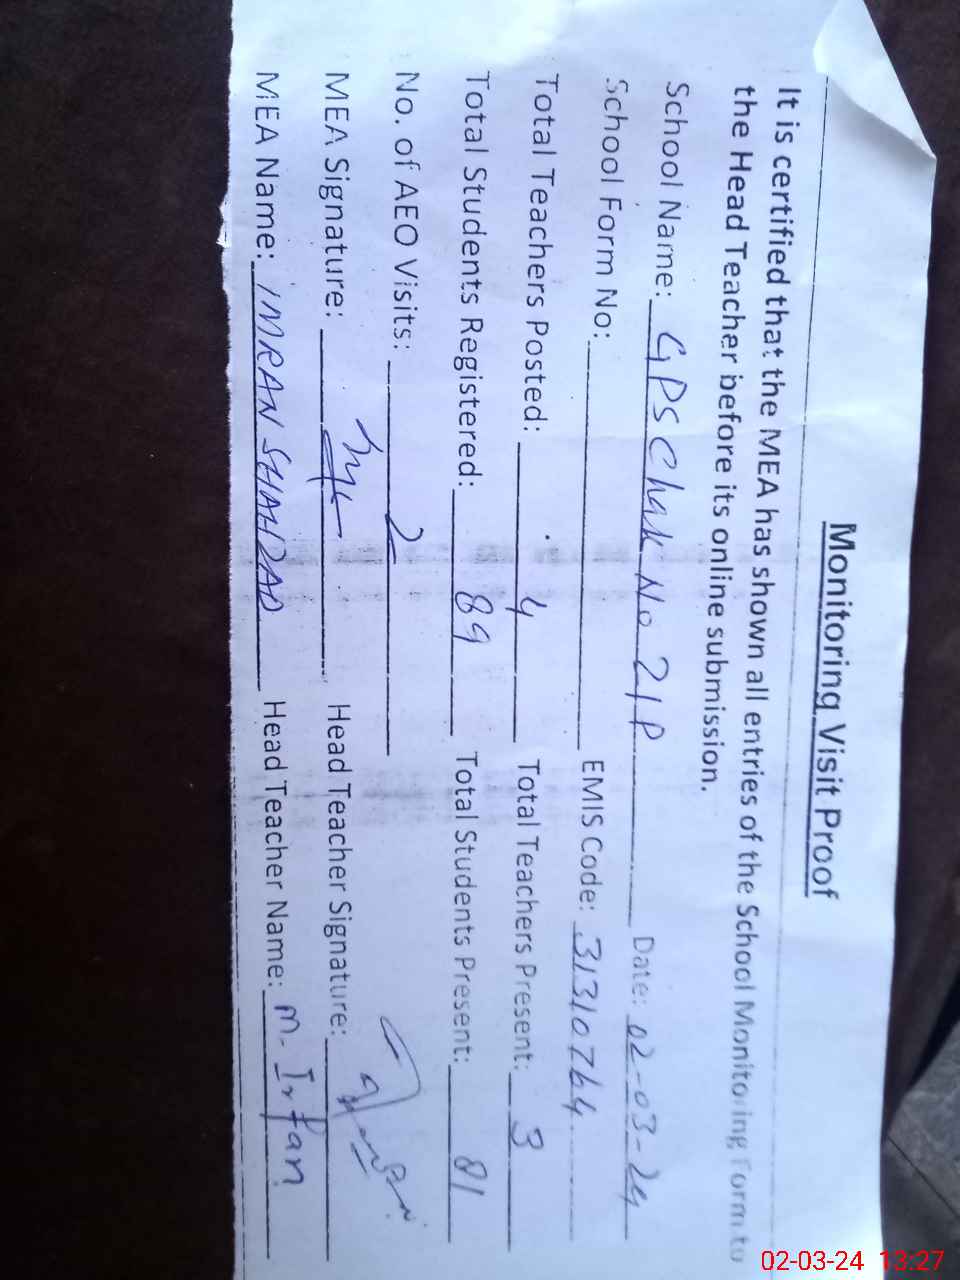 Monitoring Visit Proof
It is certified that the MEA has shown all entries of the School Monitoring Form to
the Head Teacher before its online submission.
School Name: GPS Chak No 21P Date: 02-03-24
School Form No: EMIS Code: 31310764
Total Teachers Posted: 4 Total Teachers Present: 3
Total Students Registered: 89 Total Students Present: 81
No. of AEO Visits: 2
MEA Signature: Head Teacher Signature:
MEA Name: IMRAN SHAHZAD Head Teacher Name: M. Irfan
02-03-24 13:27